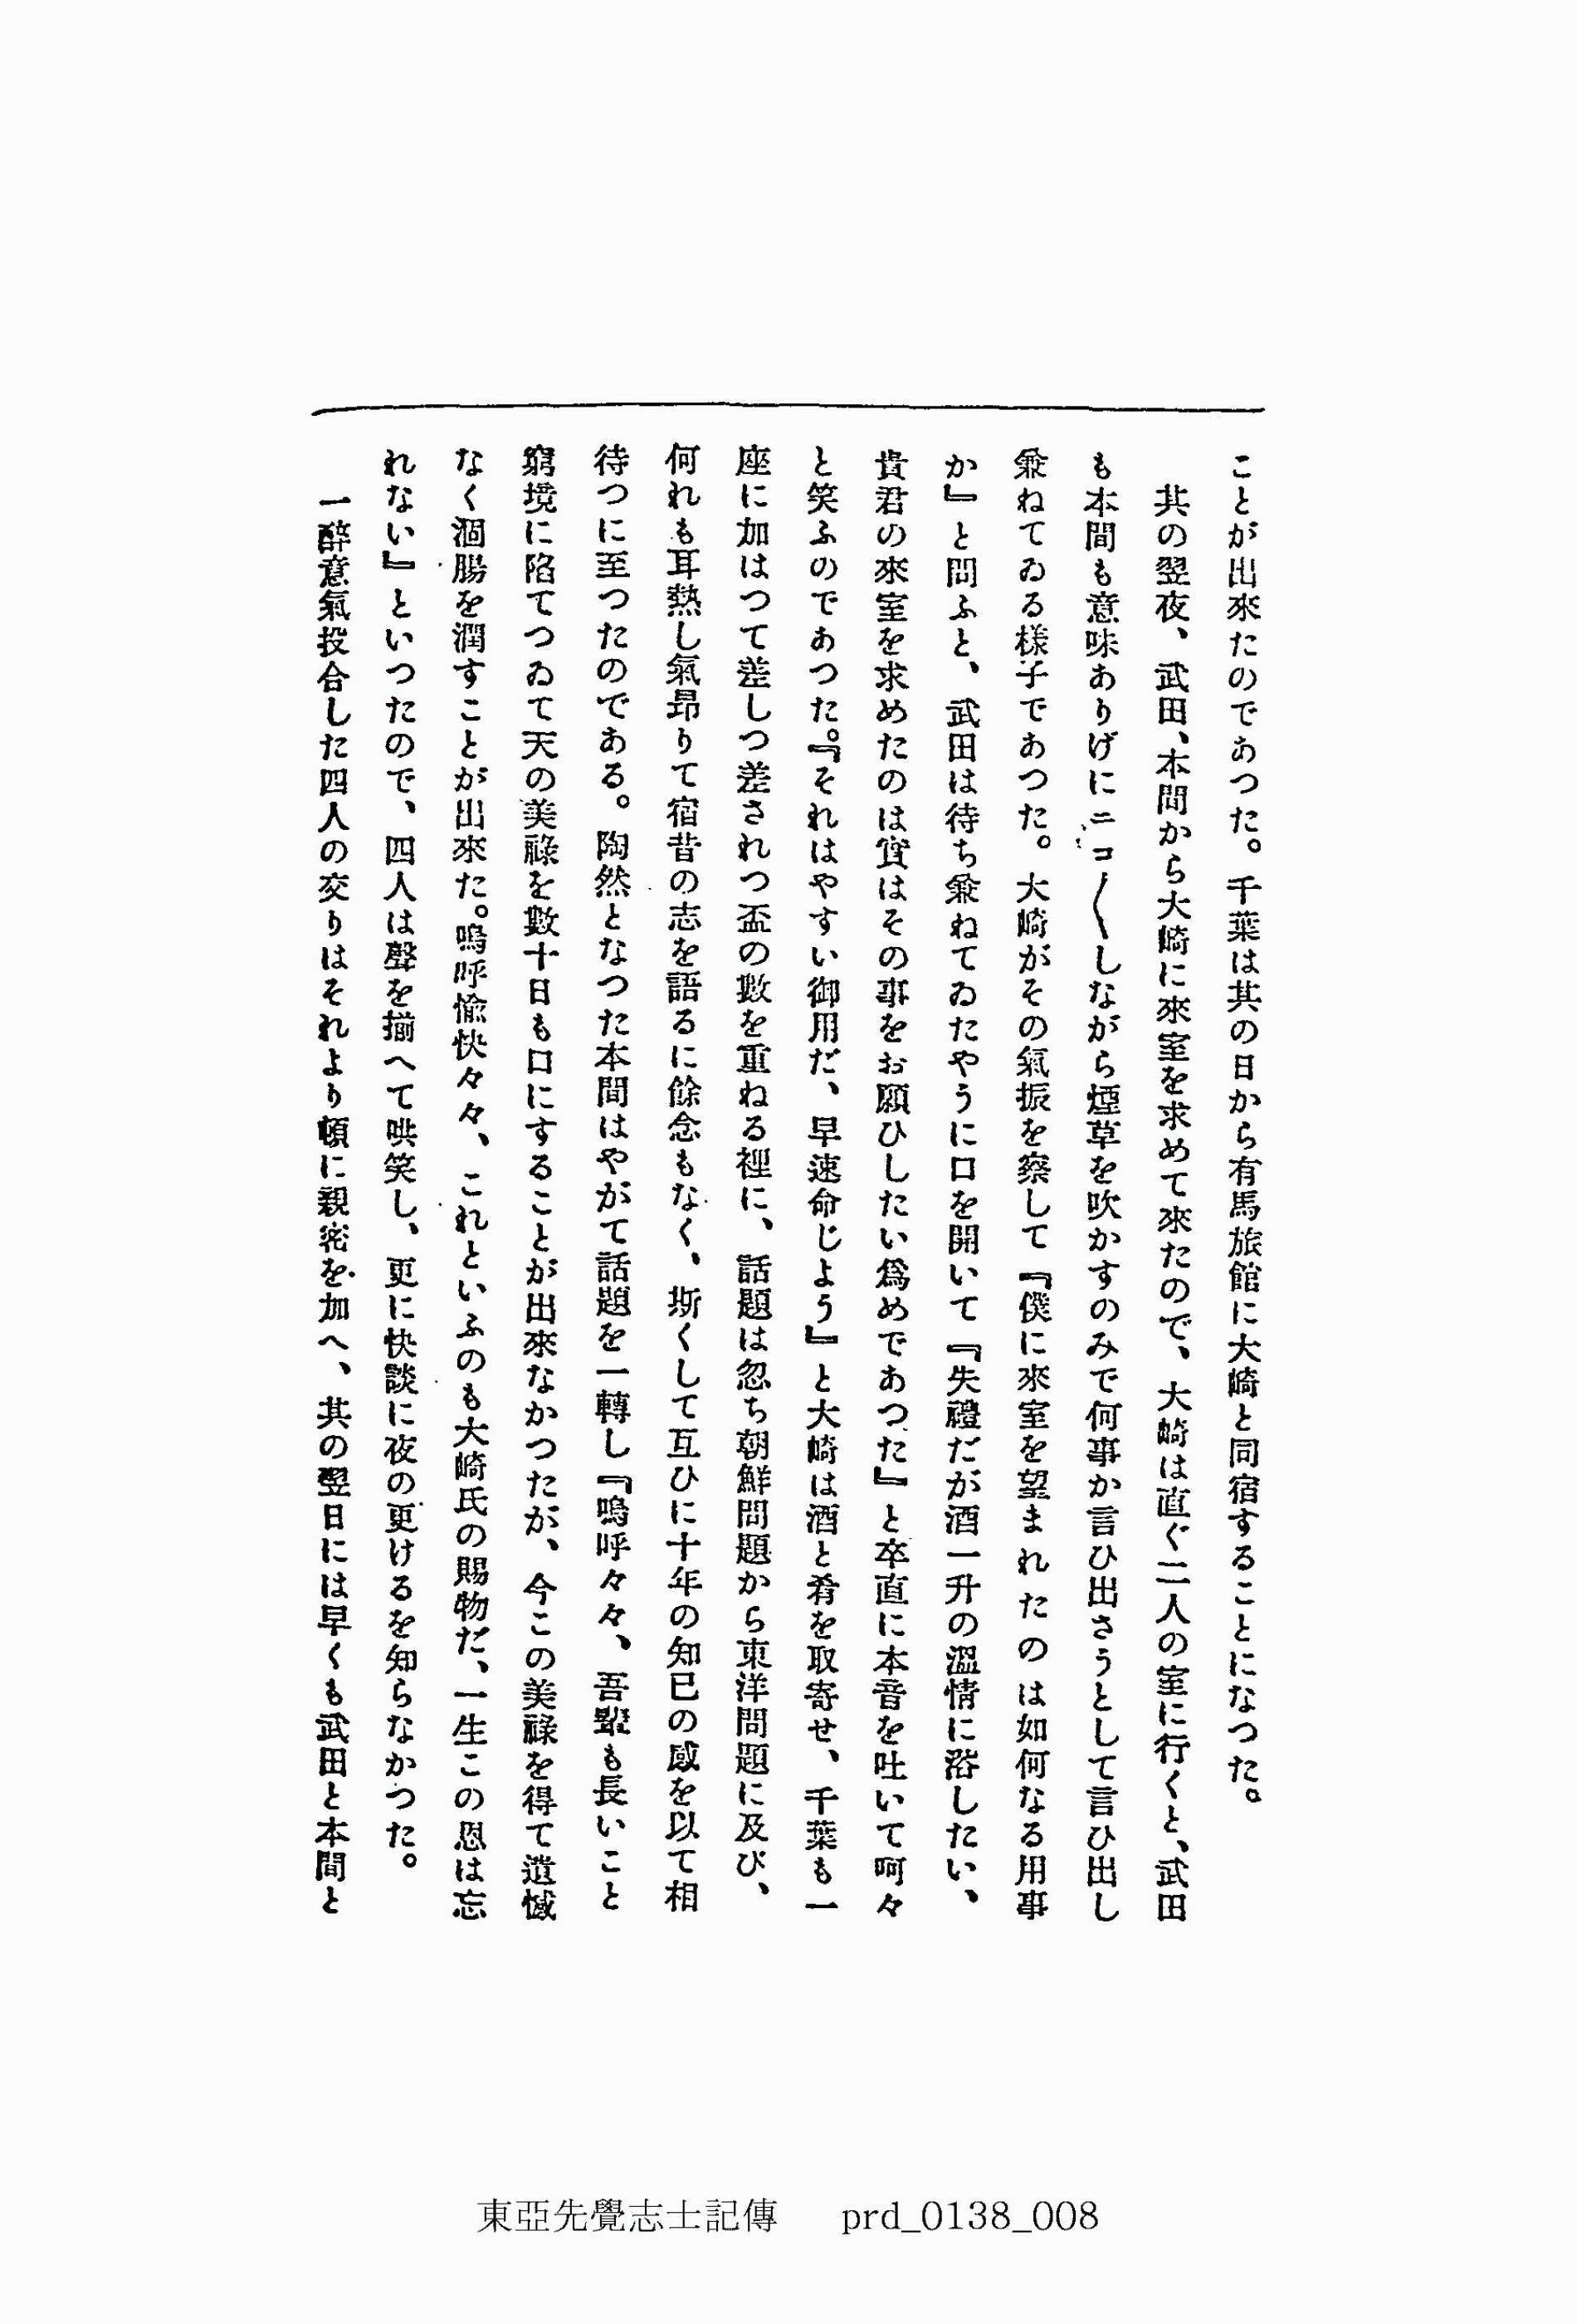 ことが出來たのであつた。千葉は其の日から有馬旅館に大崎と同宿することになつた。
其の翌夜、武田、本間から大崎に來室を求めて來たので、大崎は直ぐ二人の室に行くと、武田
も本間も意味ありげにニコ〱しながら煙草を吹かすのみで何事か言ひ出さうとして言ひ出し
兼ねてゐる樣子であつた。大崎がその氣振を察して『僕に來室を望まれたのは如何なる用事
か』と問ふと、武田は待ち兼ねてゐたやうに口を開いて『失禮だが酒一升の溫情に浴したい、
貴君の來室を求めたのは實はその事をお願ひしたい爲めであつた』と卒直に本音を吐いて呵々
と笑ふのであつた。『それはやすい御用だ、早速命じよう』と大崎は酒と肴を取寄せ、千葉も一
座に加はつて差しつ差されつ盃の數を重ねる裡に、話題は忽ち朝鮮問題から東洋問題に及び、
何れも耳熱し氣昂りて宿昔の志を語るに餘念もなく、斯くして互ひに十年の知已の感を以て相
待つに至つたのである。陶然となつた本間はやがて話題を一轉し『嗚呼々々、吾輩も長いこと
窮境に陷てつゐて天の美祿を數十日も口にすることが出來なかつたが、今この美祿を得て遺憾
なく涸腸を潤すことが出來た。嗚呼愉快々々、これといふのも大崎氏の賜物だ、一生この恩は忘
れない』といつたので、四人は聲を揃へて哄笑し、更に快談に夜の更けるを知らなかつた。
一醉意氣投合した四人の交りはそれより頓に親密を加へ、其の翌日には早くも武田と本間と
東亞先覺志士記傳 prd_0138_008